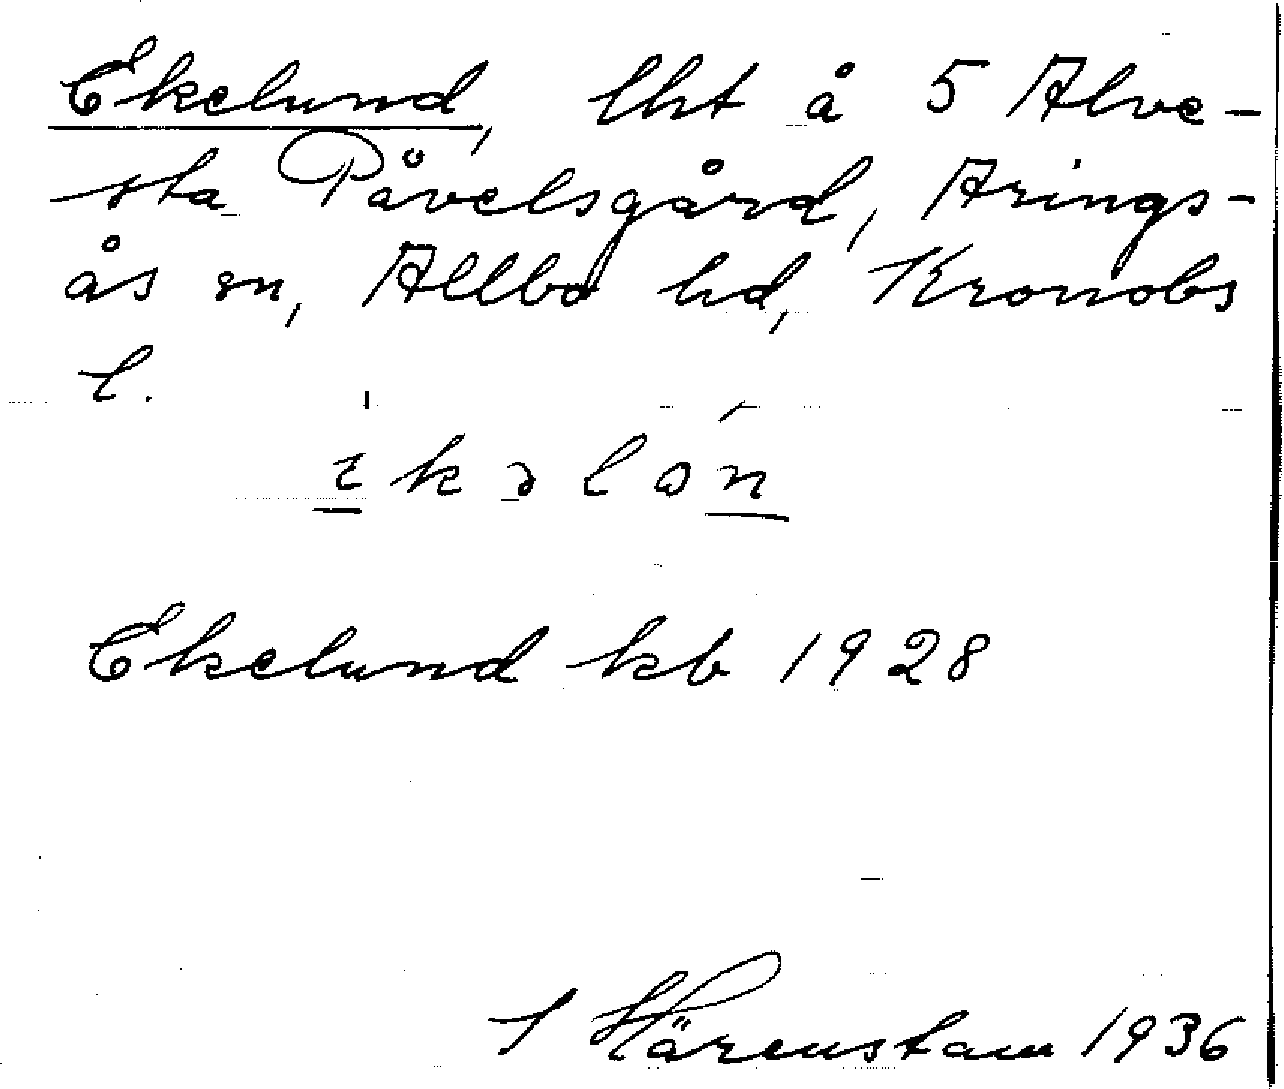 Ekelund, lht å 5 Alve-
sta Påvelsgård, Arings-
ås sn, Allbo hd, Kronobs
l.
Ekelund kb 1928
S Härenstam 1936